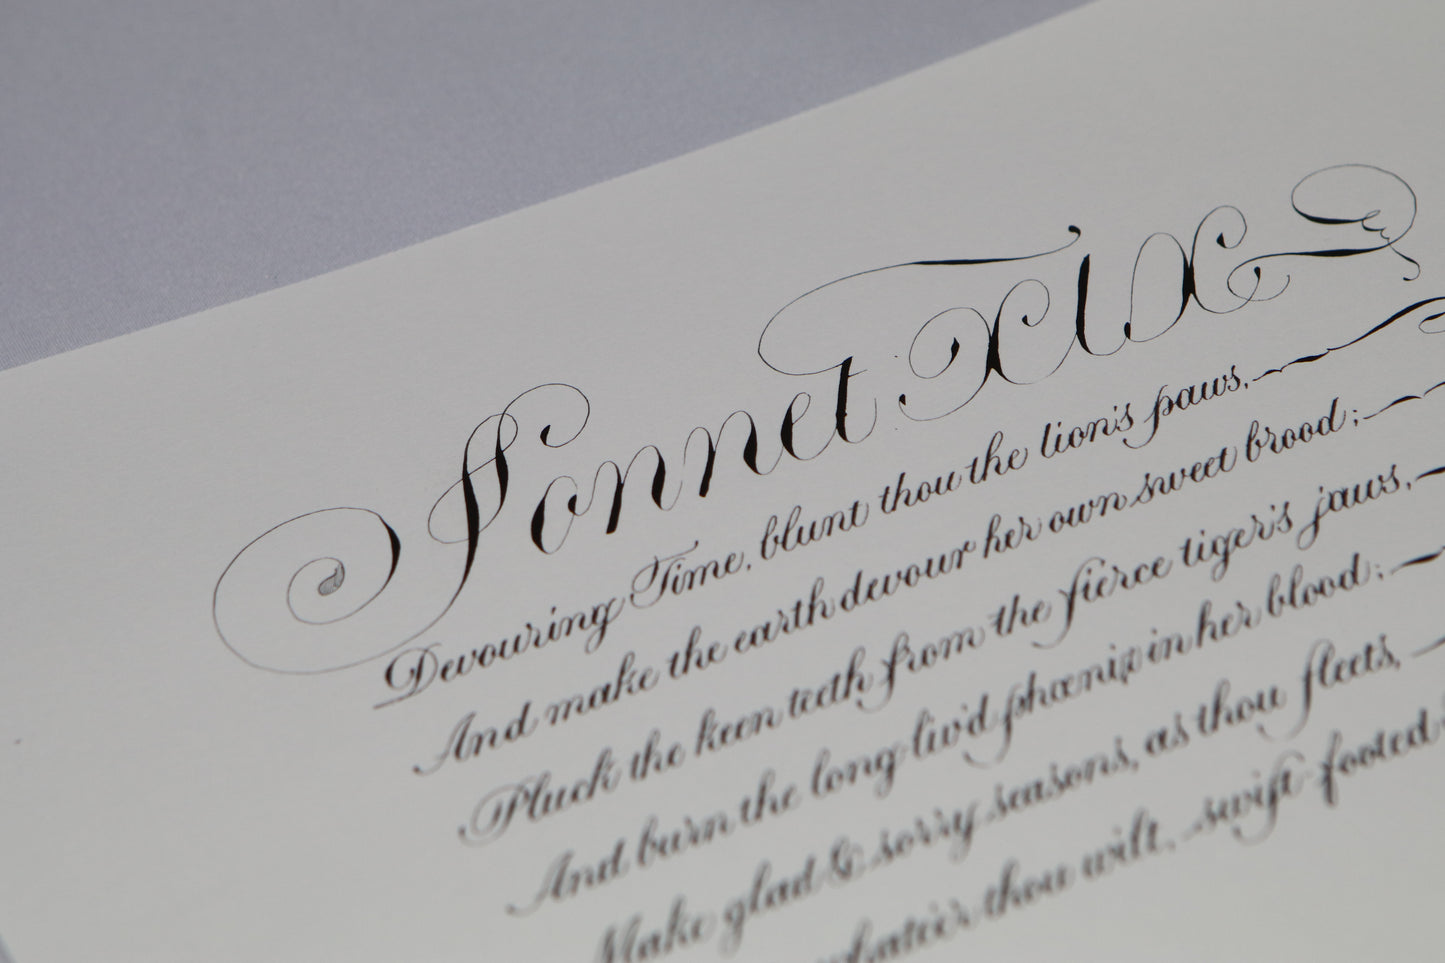 Sonnet XIX
Devouring Time, blunt thou the lion's paws,
And make the earth devour her own sweet brood;
Pluck the keen teeth from the fierce tiger's jaws,
And burn the long-liv'd phœnix in her blood;
Make glad & sorry seasons, as thou fleets,
thou wilt, swift-footed